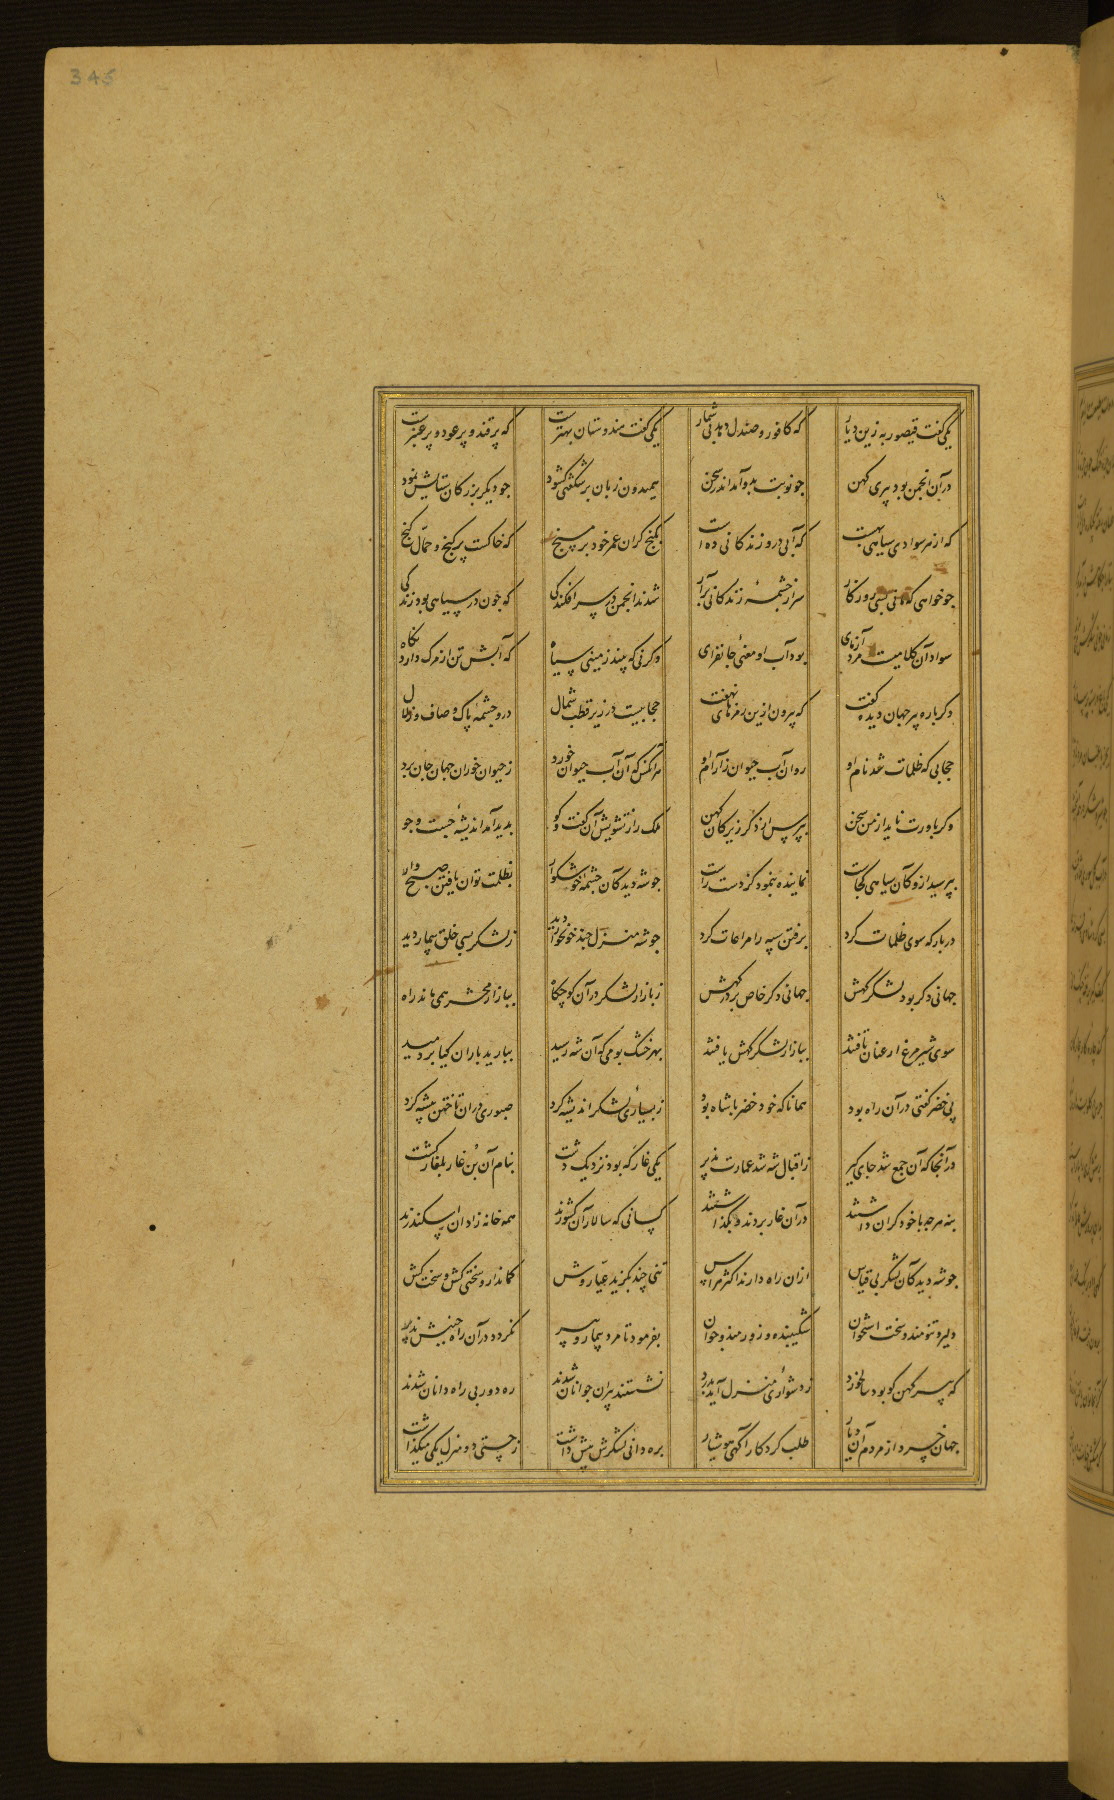 345
یکی گفت قیصور به زین دیار که کافور و صندل دهد بی شمار یکی گفت هندوستان بهترست که پر قند و پر عود و پر عنبرست
در آن انجمن بود پیری کهن جو نوبت بدو آمد اندر سخن همیدون زبان بر شگفتی گشود جو دیگر بزرگان ستایش نمود
که از هر سوادی سیاهی بهست که آبی درو زندگانی ده است بگنج گران عمر خود بر مسنج که خاکست پر گنج و حمّال گنج
جو خواهی که مانی بسی روزگار سر از چشمهٔ زندگانی برآر شدند انجمن در سر افکندگی که جون در سیاهی بود زندگی
سواد آن کلامیست مرد آزمای بود آب او معنی جانفزای وگرنی که بیند زمینی سیاه که آبش تن از مرگ دارد نگاه
دگرباره پیر جهان دیده گفت که بیرون ازین رمزهای نهفت حجابیست در زیر قطب شمال درو چشمهٔ پاک و صاف و زلال
حجابی که ظلمات شد نام او روان آب حیوان ز آرام او هر آنکس که آن آب حیوان خورد ز حیوان خوران جهان جان برد
وگر باورت ناید از من سخن بپرس از دگر زیرکان کهن ملک را ز تشویش آن گفت و گو پدید آمد اندیشهٔ جست و جو
بپرسید ازو کان سیاهی کجاست نماینده بنمود کز دست راست جو شه دید کان چشمهٔ خوشگوار بظلمت توان یافتن صبح وار
در بارگه سوی ظلمات کرد برفتن سپه را مراعات کرد جو شه منزل جند خونخوار دید ز لشکر بسی خلق بیمار دید
جهانی دگر بود لشکرگهش جهانی دگر خاص بر درگهش ز بازار لشکر در آن کوچگاه ببازار محشر همی ماند راه
سوی شیر مرغ ار عنان تافتند ببازار لشکرگهش یافتند بهر خشک بومی که آن شه رسید ببارید باران گیا بردمید
پی خضر گفتی در آن راه بود همانا که خود خضر با شاه بود ز بسیاری لشکر اندیشه کرد صبوری در آن تاختن پیشه کرد
در آنجا که آن جمع شد جای گیر ز اقبال شه شد عمارت پذیر یکی غار گه بود نزدیک دشت بنام آن بُن غار بلغار گشت
بنه هرجه با خود گران داشتند در آن غار بردند و بگذاشتند کسانی که سالار آن کشورند همه خانه زادان اسکندرند
جو شه دید کان لشکر بی قیاس از آن راه دارند اکثر هراس تنی چند بگزید عیّار وش کماندار و سختی کش و سخت کش
دلیر و تنومند و سخت استخوان شکیبنده و زورمند و جوان بفرمود تا مرد بیمار و پیر نگردد در آن راه جنبش پذیر
که پیر کهن کو بود سالخورد ز دشواری منزل آید بدرد نشستند پیران جوانان شدند ره دور بی راه دانان شدند
جهان خسرو از مردم آن دیار طلب کرد کارآگهی هوشیار بره دانی لشکرش پیش داشت ز چستی دو منزل یکی میگذاشت